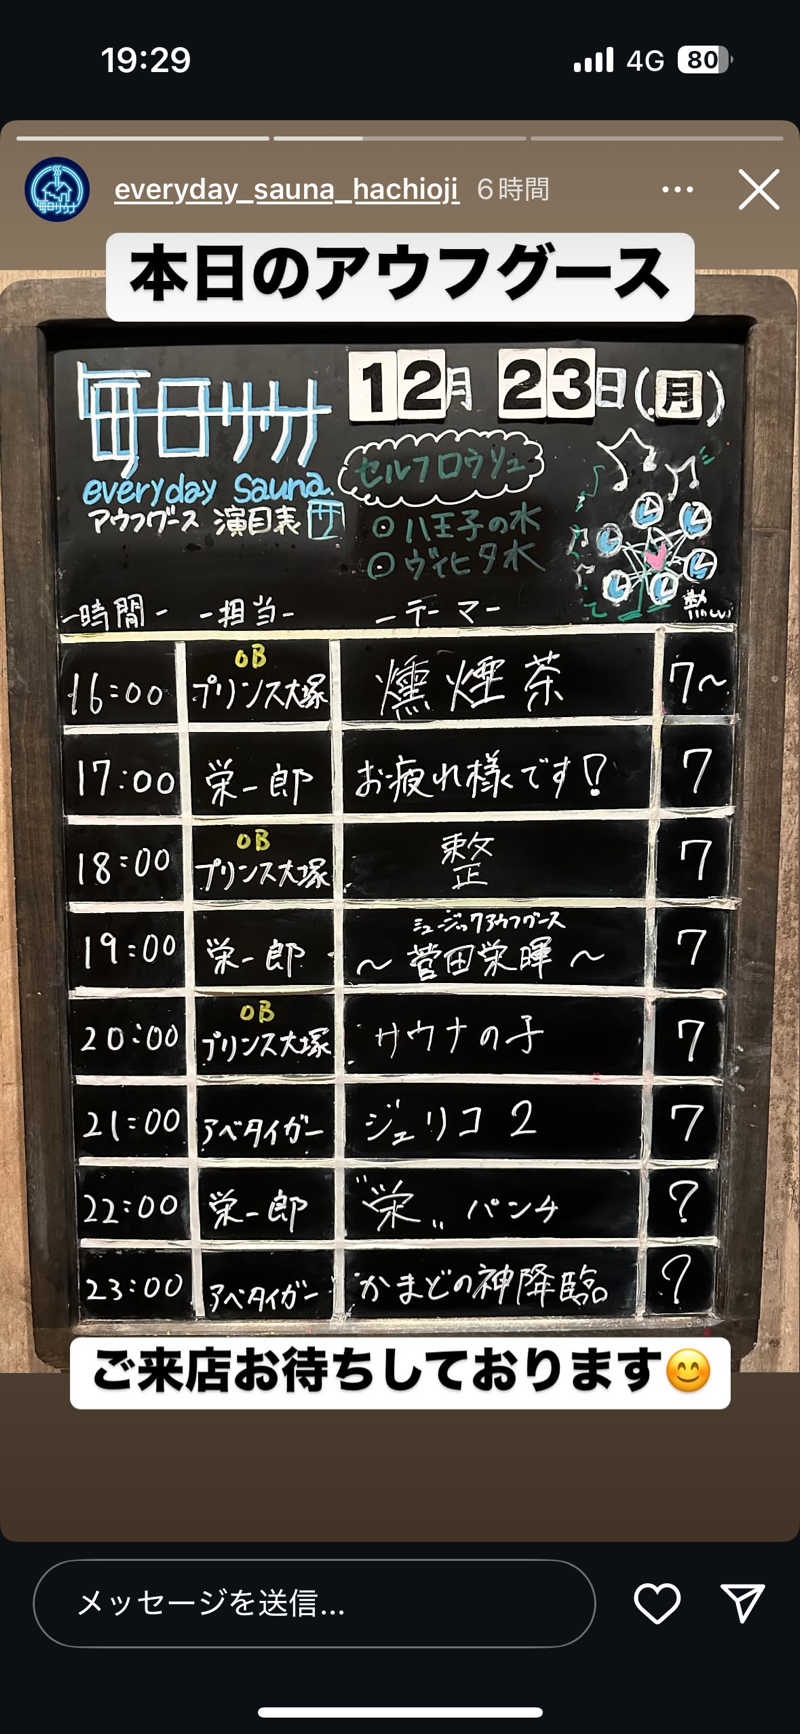 19:29
4G 80
everyday_sauna_hachioji 6時間
本日のアウフグース
毎日サウナ
12月23日(月)
everyday Sauna.
アウフグース 演目表 サ
セルフロウリュ
八王子の水
ヴィヒタ水
熱
-時間- -担当- -テーマ-
16:00 OB プリンス大塚 燻煙茶 7〜
17:00 栄一郎 お疲れ様です! 7
18:00 OB プリンス大塚 整 7
ミュージックアウフグース
19:00 栄一郎 〜菅田栄暉〜 7
20:00 OB プリンス大塚 サウナの子 7
21:00 アベタイガー ジュリコ2 7
22:00 栄一郎 "栄" パンチ ?
23:00 アベタイガー かまどの神降臨 ?
ご来店お待ちしております😊
メッセージを送信...